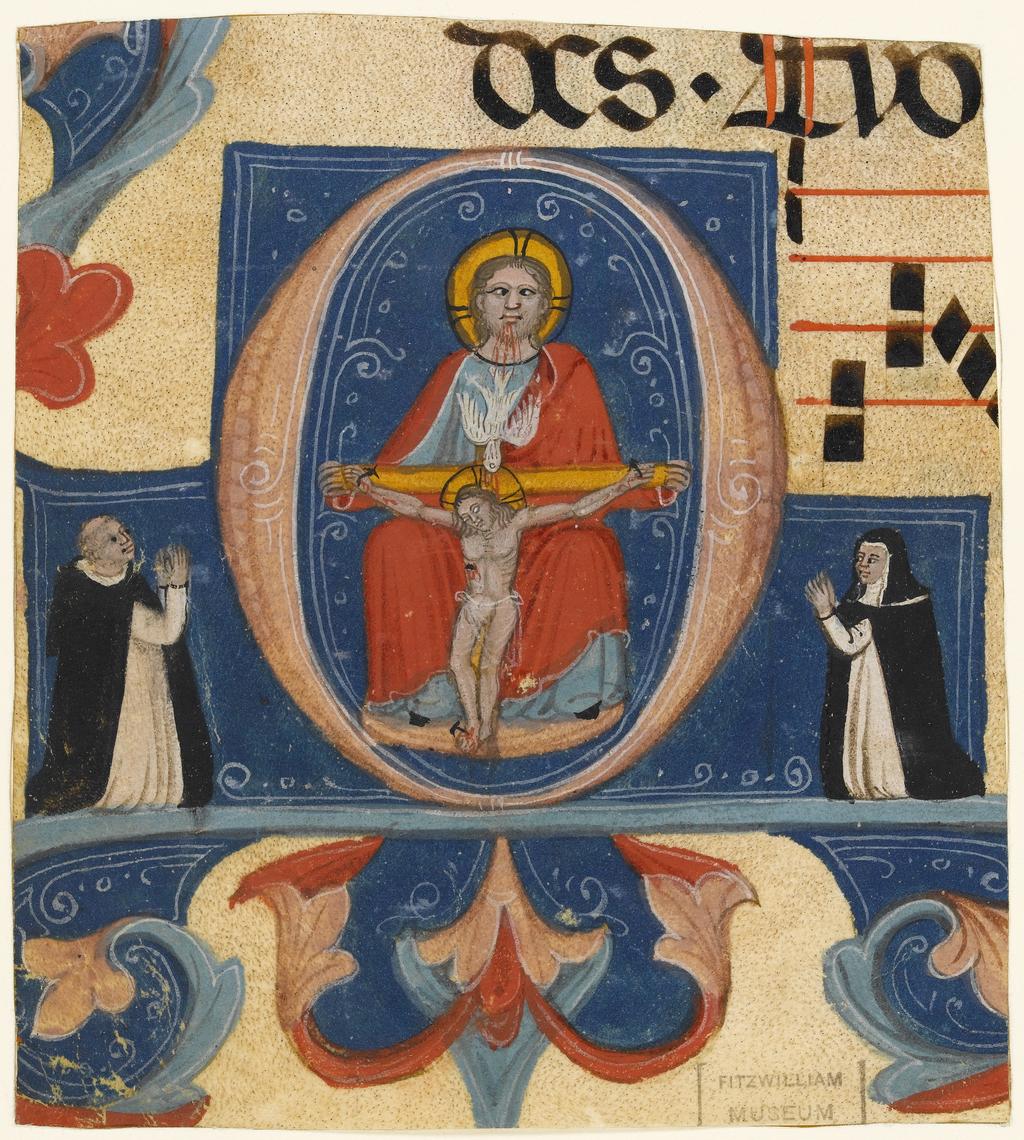 des · Auo
FITZWILLIAM
MUSEUM